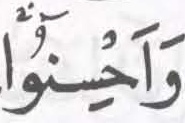 وَاَحْسِنُوْا ۛۚ